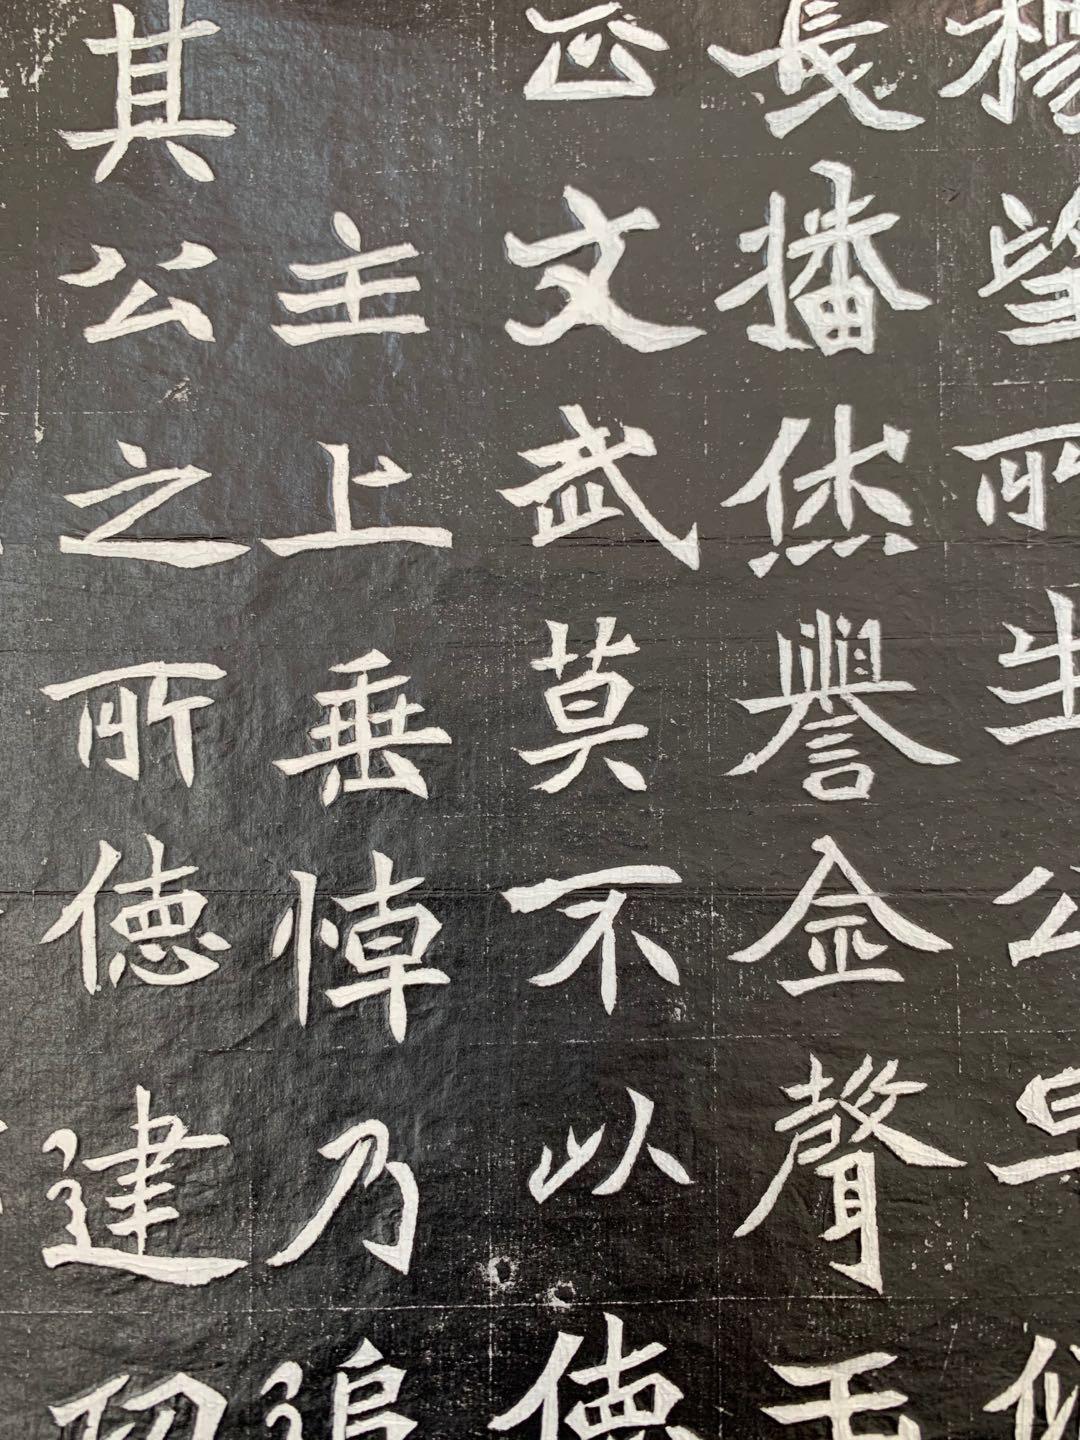 楊望所生公早似
長播休譽金聲玉
正文武莫不以德
主上垂悼乃追
其公之所德建初